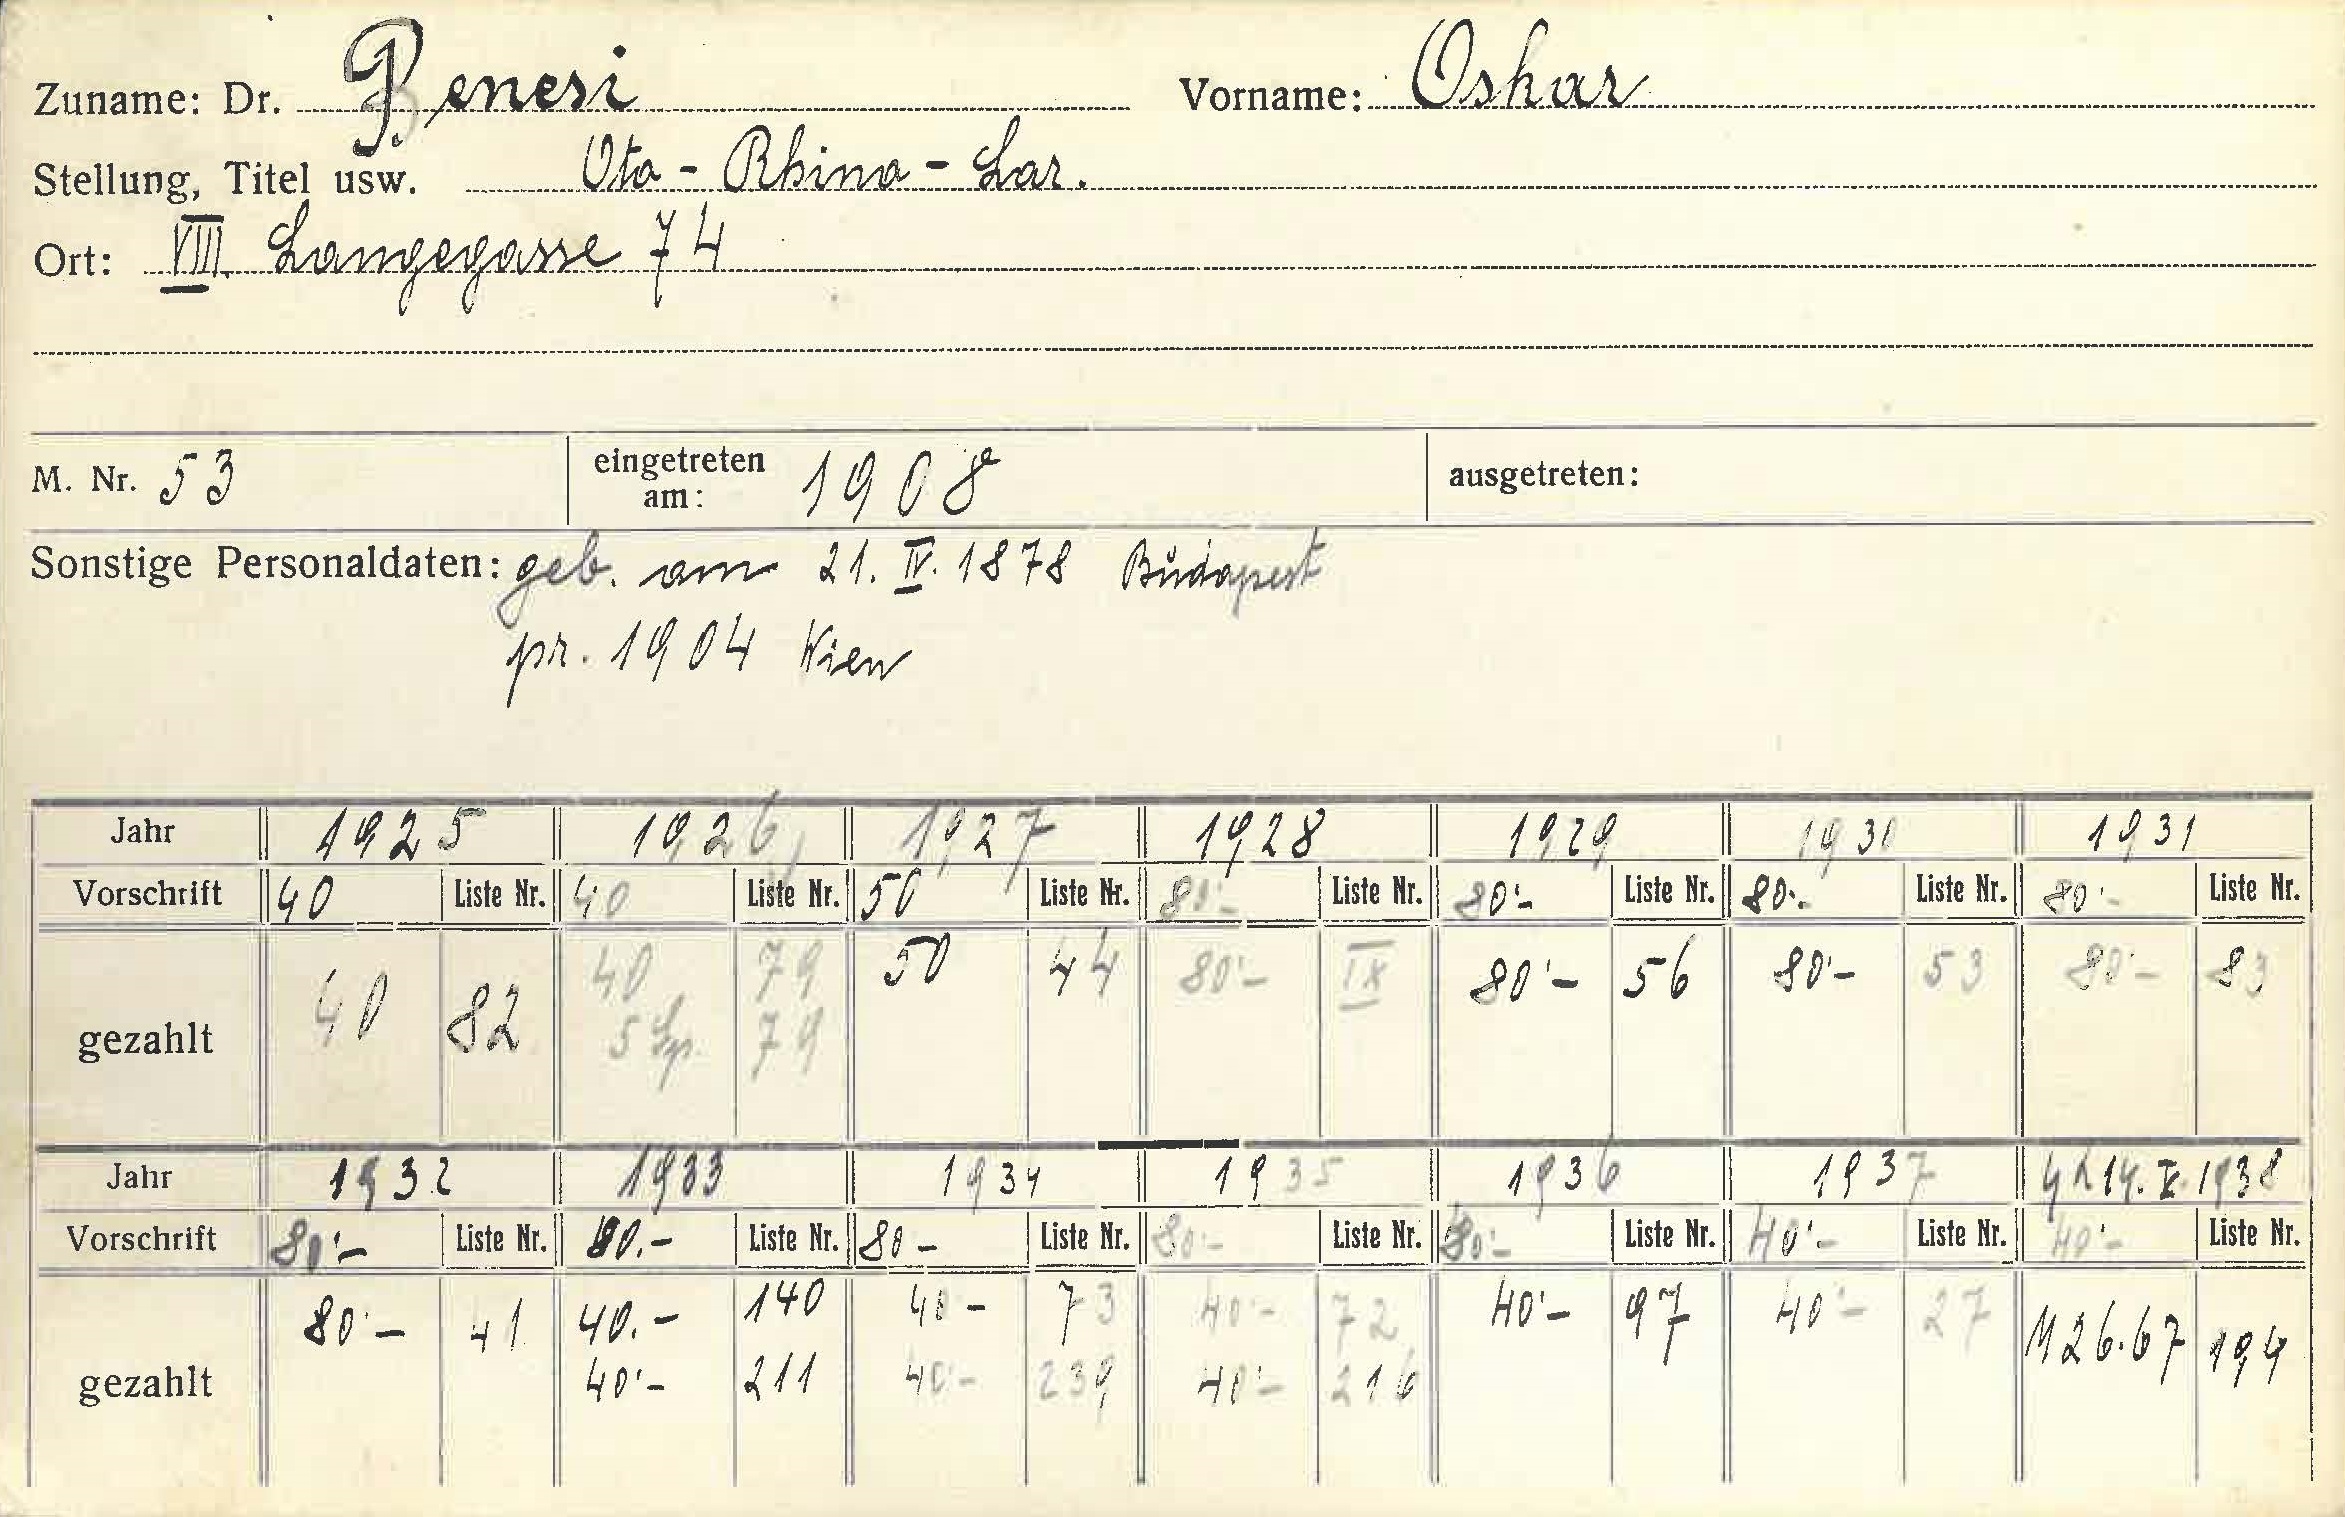 Zuname: Dr. Benesi Vorname: Oskar
Stellung, Titel usw. Oto-Rhino-Lar.
Ort: VIII. Langegasse 74
M. Nr. 53 eingetreten am: 1908 ausgetreten:
Sonstige Personaldaten: geb. am 21. IV. 1878 Budapest
pr. 1904 Wien
Jahr 1925 1926 1927 1928 1929 1930 1931
Vorschrift 40 Liste Nr. 40 Liste Nr. 50 Liste Nr. 80'- Liste Nr. 80'- Liste Nr. 80'- Liste Nr. 80'- Liste Nr.
gezahlt 40 82 40 79 50 44 80'- IX 80'- 56 80'- 53 80'- 83
5 Sp. 79
Jahr 1932 1933 1934 1935 1936 1937 14. V. 1938
Vorschrift 80'- Liste Nr. 80.- Liste Nr. 80- Liste Nr. 80'- Liste Nr. 80'- Liste Nr. 40'- Liste Nr. 40'- Liste Nr.
gezahlt 80'- 41 40.- 140 40- 73 40'- 72 40'- 97 40'- 27 M 26.67 194
40'- 211 40'- 239 40'- 216